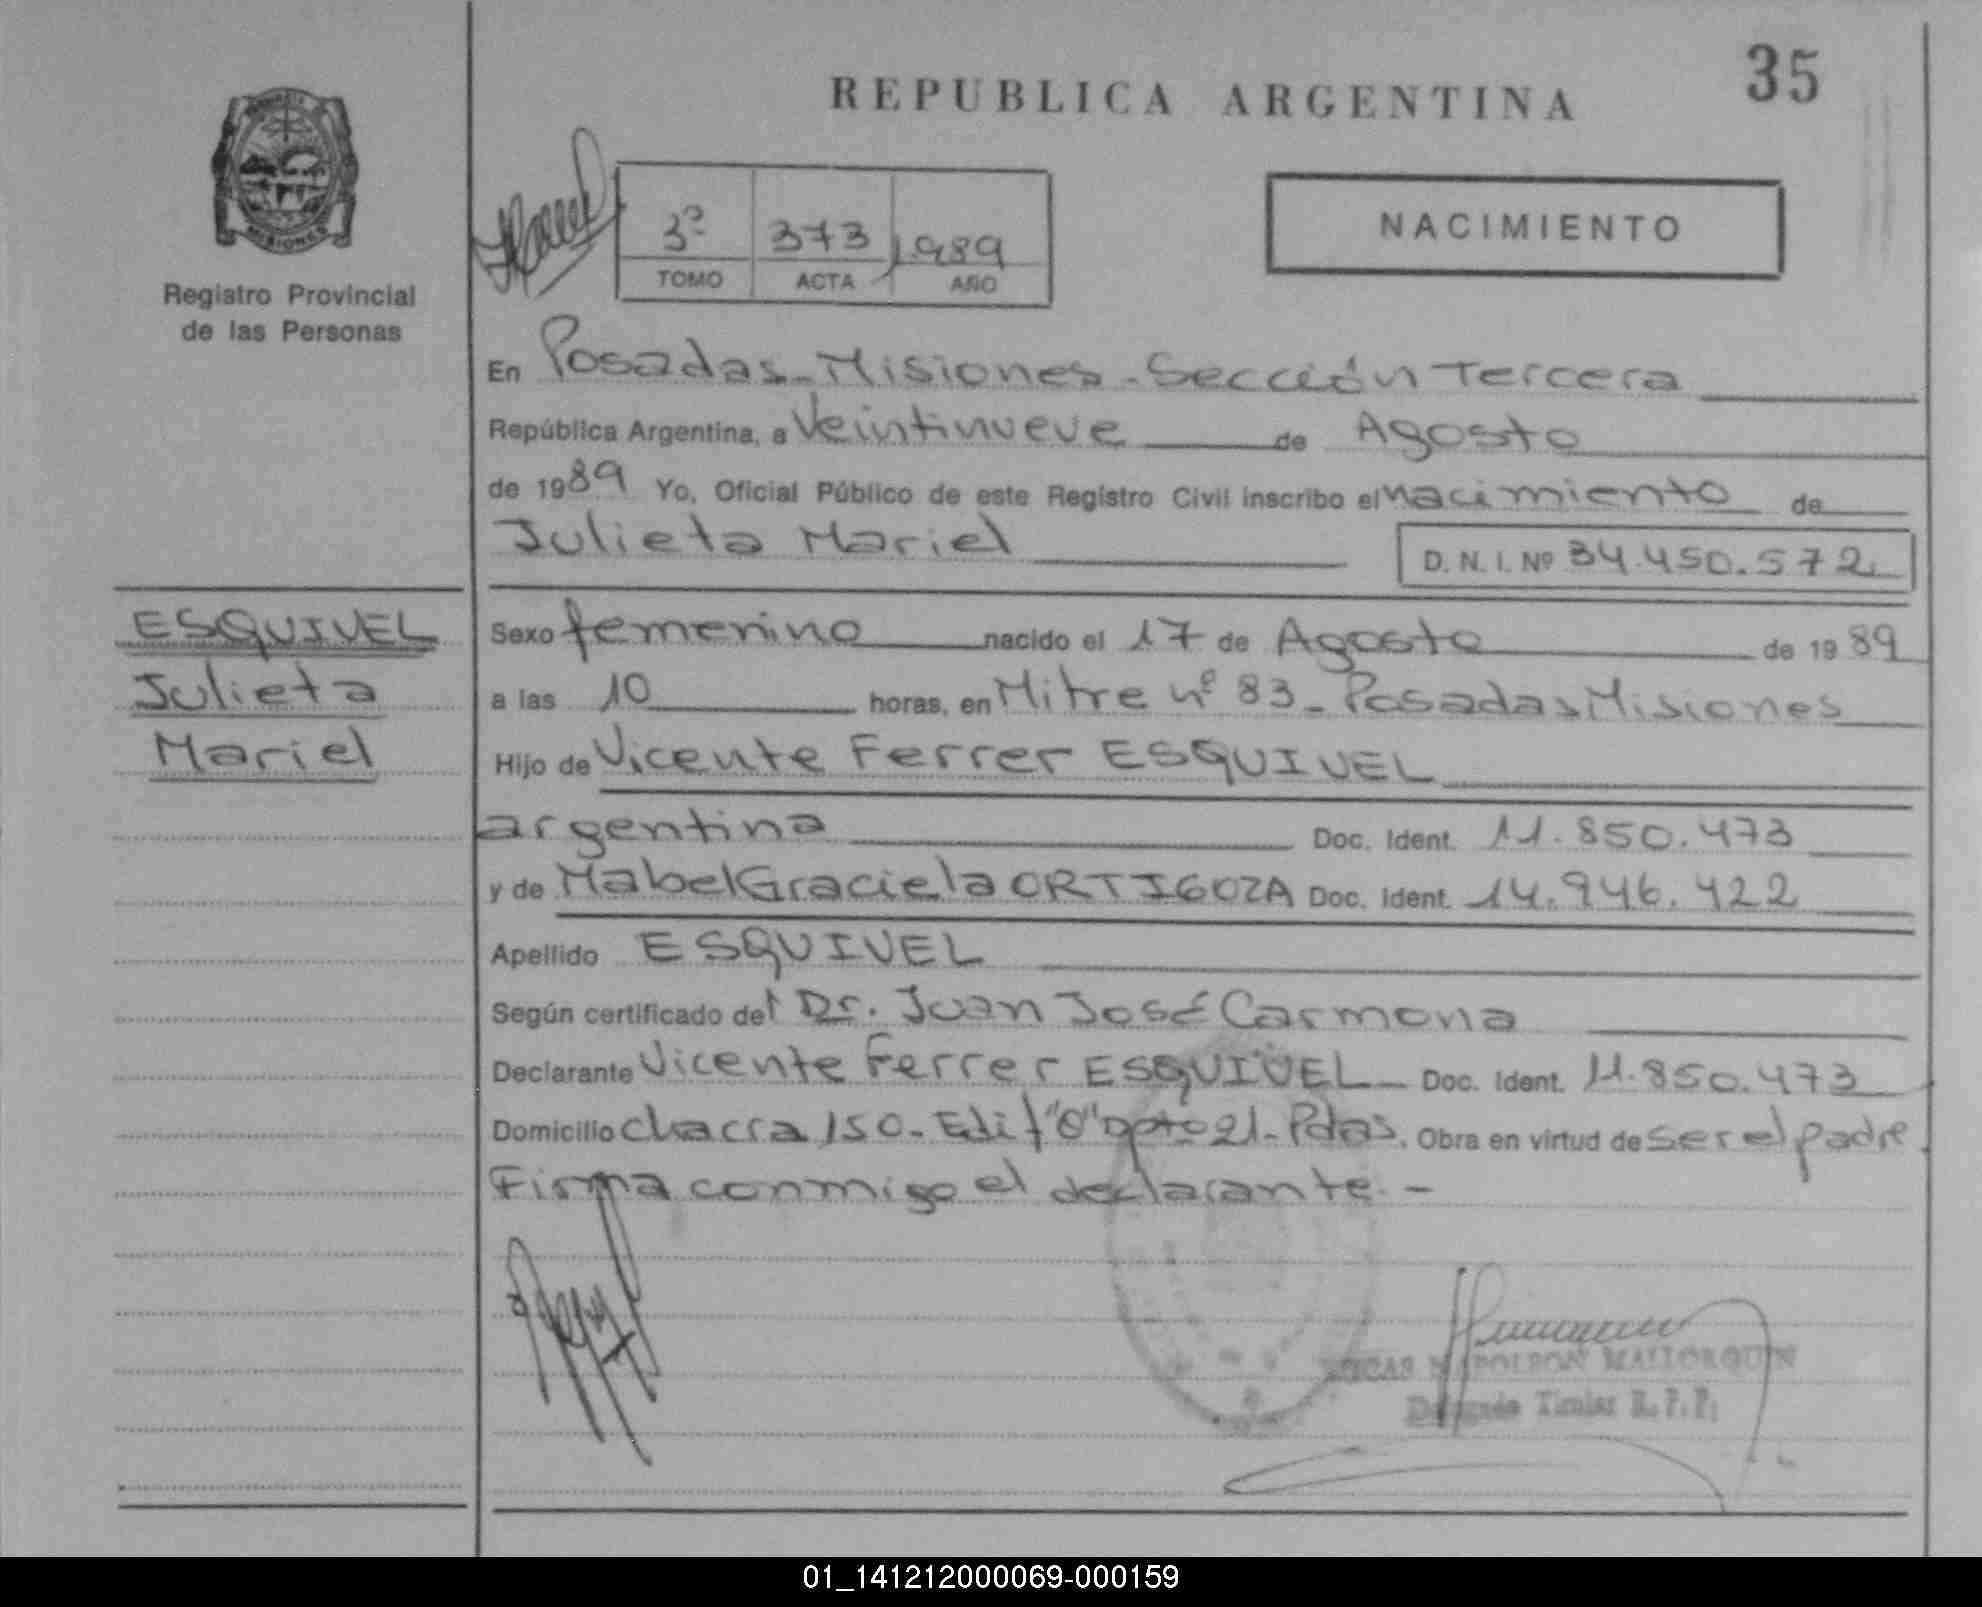 REPUBLICA ARGENTINA
35
MISIONES
Registro Provincial
de las Personas
3º 373 1989
TOMO ACTA AÑO
NACIMIENTO
En Posadas - Misiones - Sección Tercera
República Argentina, a Veintinueve de Agosto
de 1989 Yo, Oficial Público de este Registro Civil inscribo el nacimiento de
Julieta Mariel
D. N. I. Nº 34.450.572
ESQUIVEL
Julieta
Mariel
Sexo femenino nacido el 17 de Agosto de 1989
a las 10 horas, en Mitre nº 83 - Posadas Misiones
Hijo de Vicente Ferrer ESQUIVEL
argentina Doc. Ident. 11.850.473
y de Mabel Graciela ORTIGOZA Doc. Ident. 14.946.422
Apellido ESQUIVEL
Según certificado del Dr. Juan José Carmona
Declarante Vicente Ferrer ESQUIVEL - Doc. Ident. 11.850.473
Domicilio chacra 150 - Edif "O" dpto 21 - Pdas. Obra en virtud de ser el padre
Firma conmigo el declarante. -
NAPOLEON MALLORQUIN
Delegado Titular R. P. P.
01_141212000069-000159